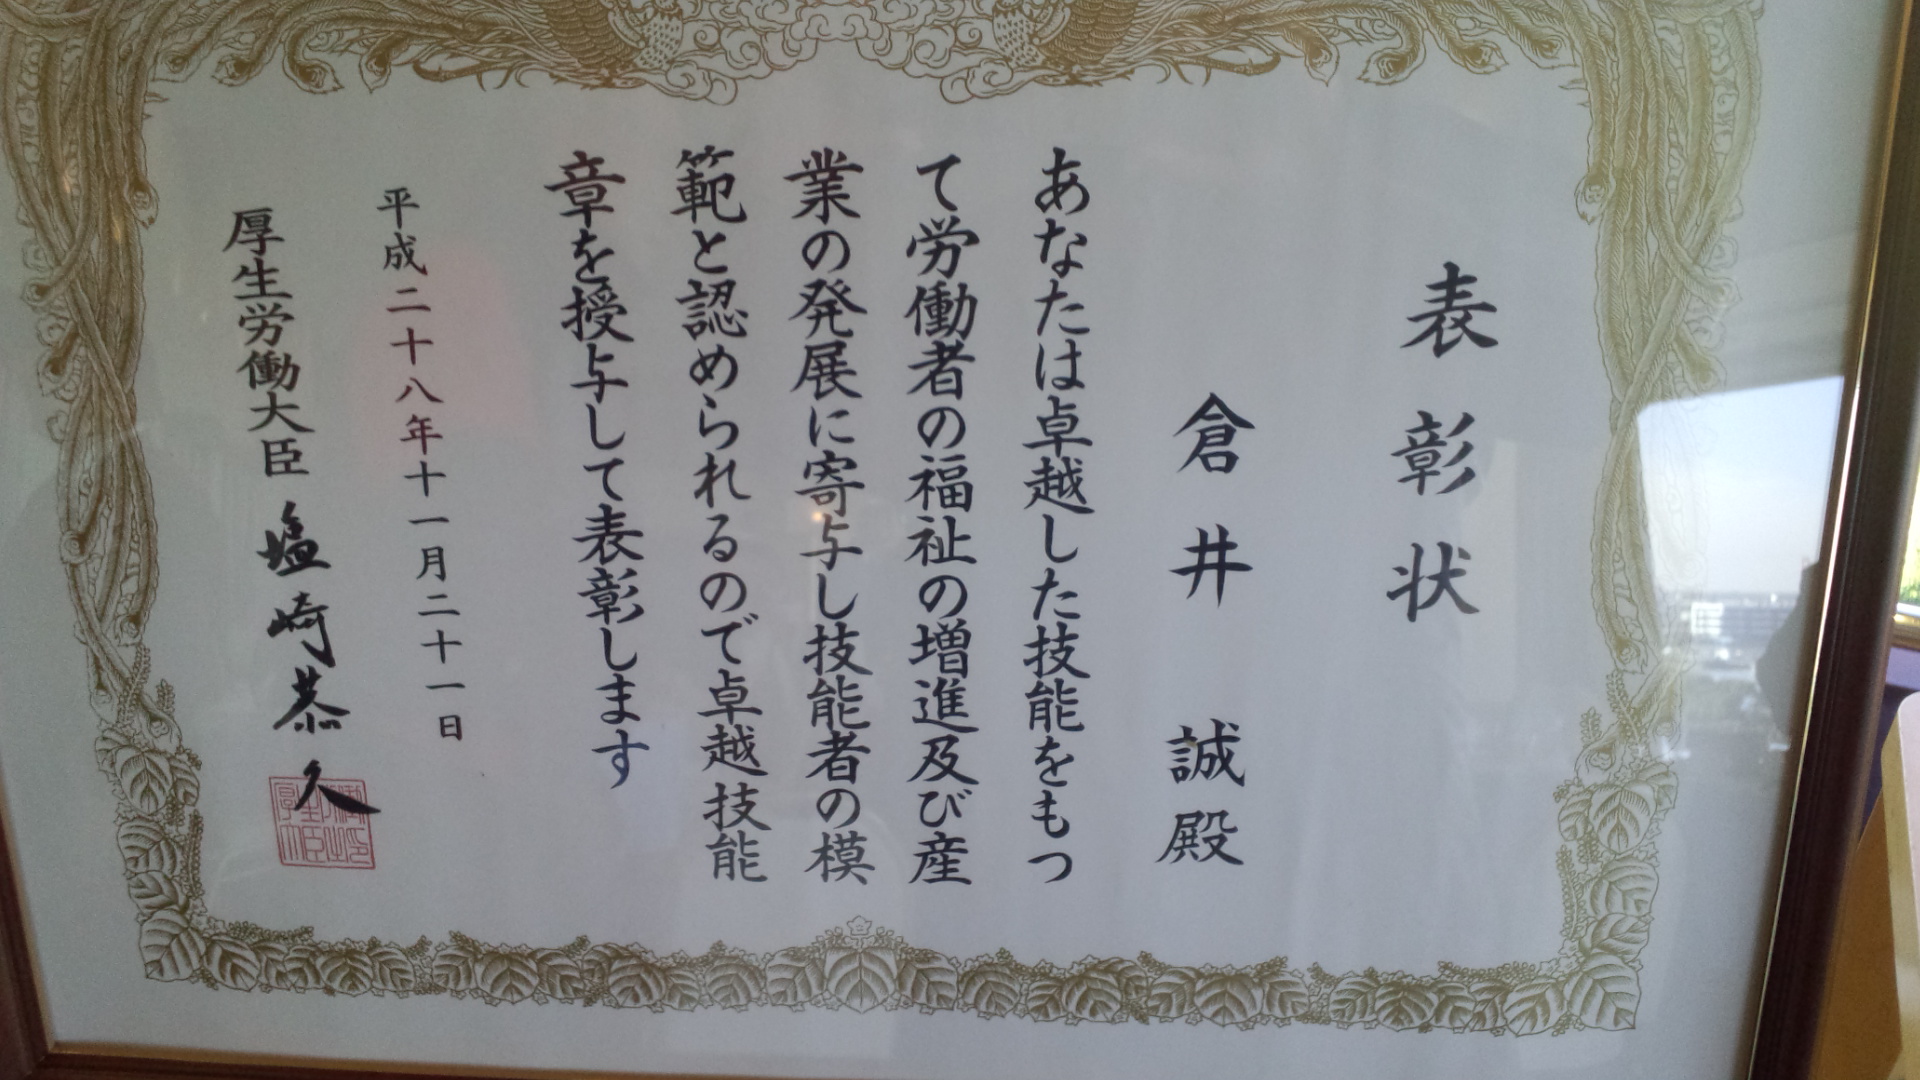 表彰状
倉井 誠殿
あなたは卓越した技能をもつ
て労働者の福祉の増進及び産
業の発展に寄与し技能者の模
範と認められるので卓越技能
章を授与して表彰します
平成二十八年十一月二十一日
厚生労働大臣 塩崎恭久